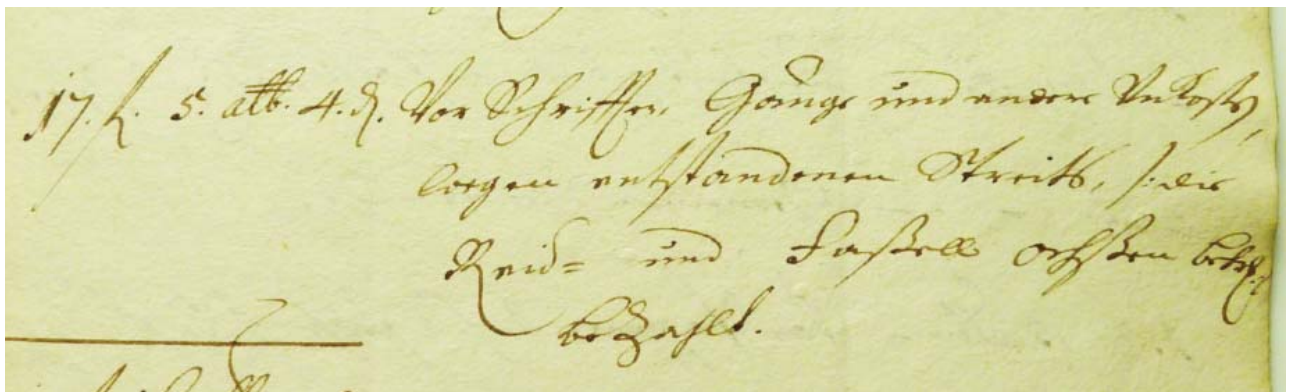 17. f. 5. alb. 4. d. Vor Schrifften, Gänge und andere Unkosten,
wegen entstandenen Streits, /: die
Reid= und Faßell ochßen betr: :/
bezahlt.